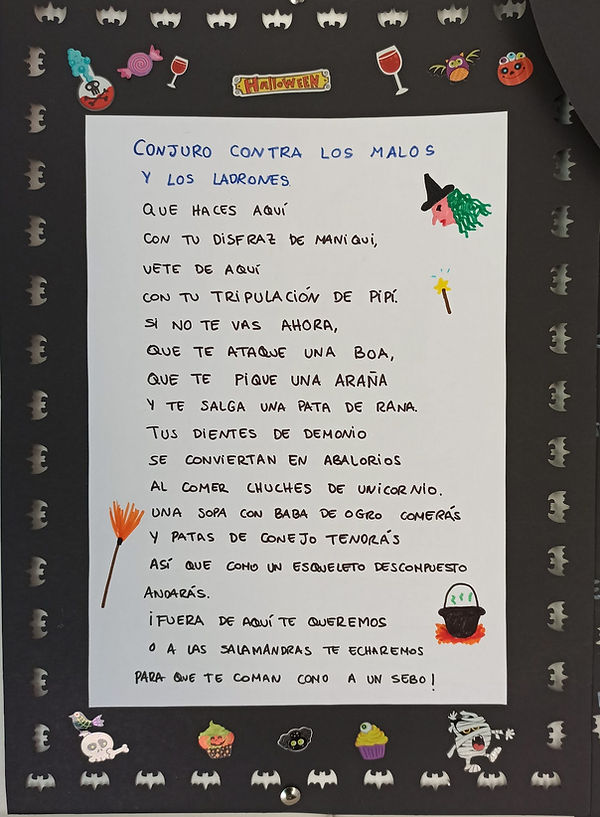 HALLOWEEN
CONJURO CONTRA LOS MALOS
Y LOS LADRONES.
QUE HACES AQUÍ
CON TU DISFRAZ DE MANIQUI,
VETE DE AQUÍ
CON TU TRIPULACIÓN DE PIPÍ.
SI NO TE VAS AHORA,
QUE TE ATAQUE UNA BOA,
QUE TE PIQUE UNA ARAÑA
Y TE SALGA UNA PATA DE RANA.
TUS DIENTES DE DEMONIO
SE CONVIERTAN EN ABALORIOS
AL COMER CHUCHES DE UNICORNIO.
UNA SOPA CON BABA DE OGRO COMERÁS
Y PATAS DE CONEJO TENDRÁS
ASÍ QUE COMO UN ESQUELETO DESCOMPUESTO
ANDARÁS.
¡FUERA DE AQUÍ TE QUEREMOS
O A LAS SALAMANDRAS TE ECHAREMOS
PARA QUE TE COMAN COMO A UN SEBO!